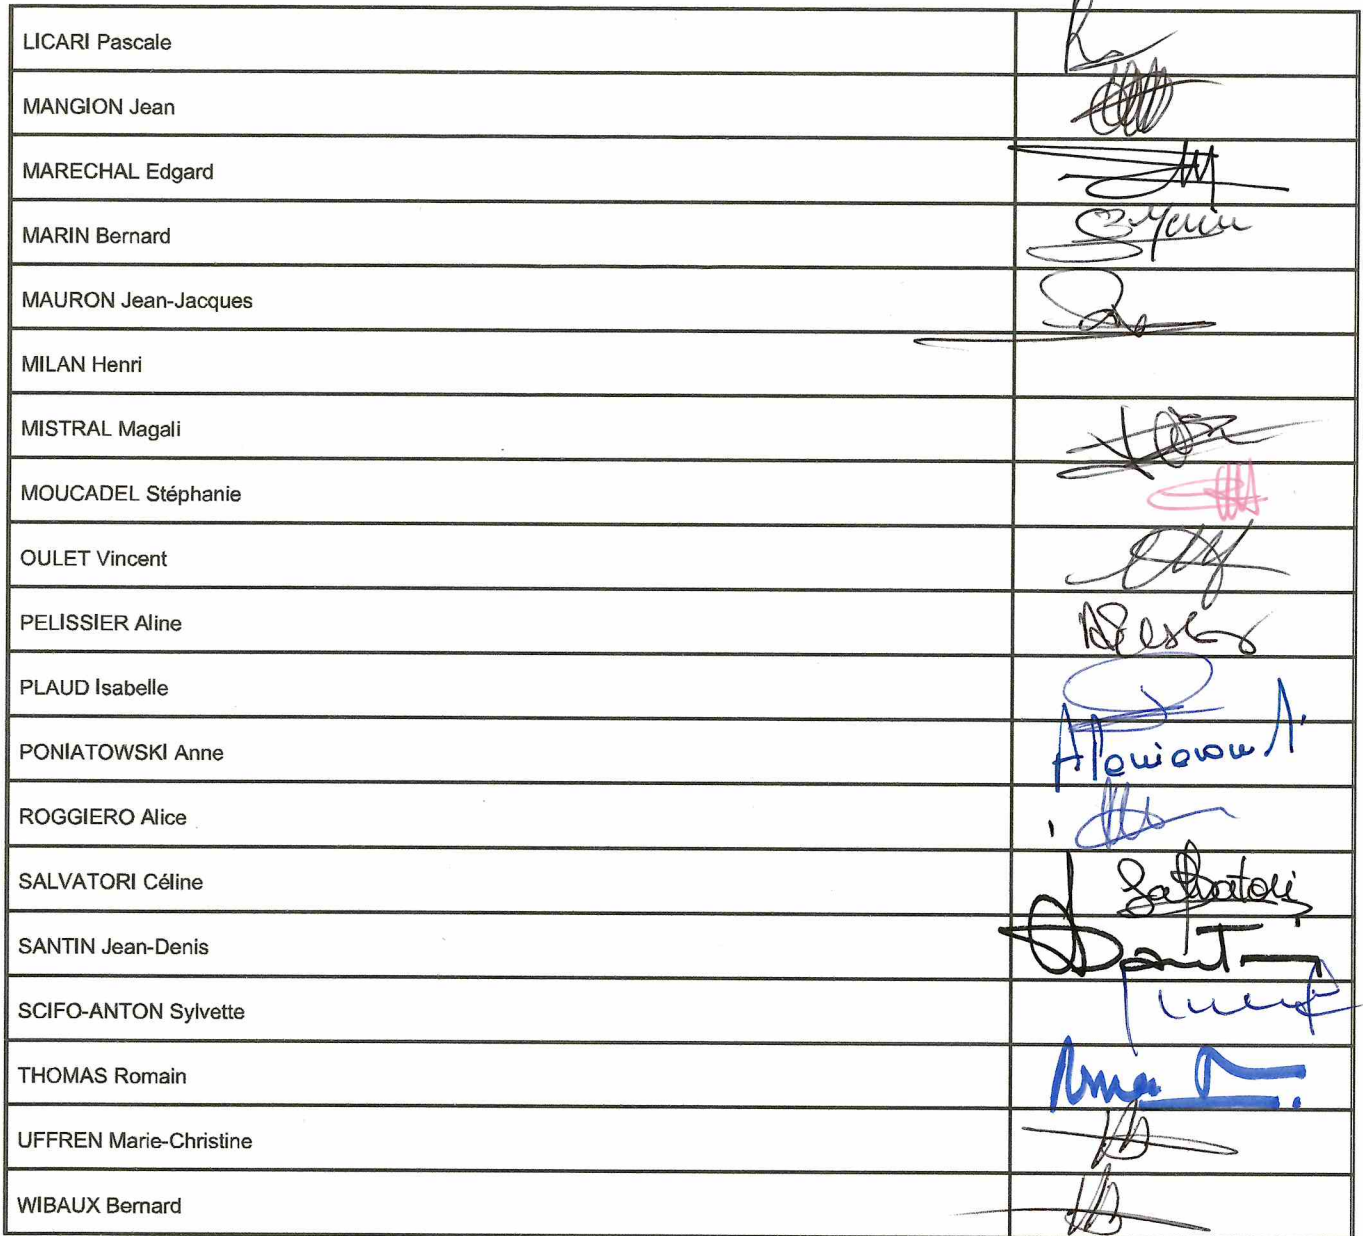 LICARI Pascale
MANGION Jean
MARECHAL Edgard
MARIN Bernard
MAURON Jean-Jacques
MILAN Henri
MISTRAL Magali
MOUCADEL Stéphanie
OULET Vincent
PELISSIER Aline
PLAUD Isabelle
PONIATOWSKI Anne
ROGGIERO Alice
SALVATORI Céline
Salvatori
SANTIN Jean-Denis
SCIFO-ANTON Sylvette
THOMAS Romain
UFFREN Marie-Christine
WIBAUX Bernard